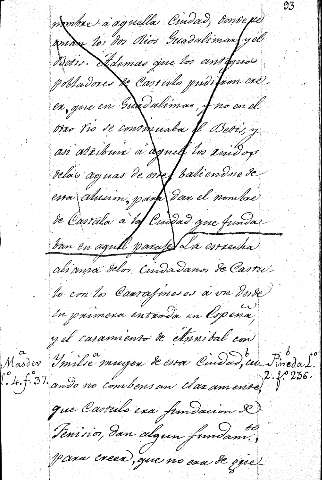 93
nombre à aquella Ciudad, donde se
juntan los dos Rios Guadalimar, y el
Betis. Ademas que los antiguos
pobladores de Castulo pudieron cre
er, que en Guadalimar, y no en el
otro rio se continuaba el Betis, y
asi atribuir a aquel los ruidos
delas aguas de este, valiendose de
esta alusion, para dar el nombre
de Castula à la Ciudad que funda-
ban en aquel parage. La estrecha
alianza delos Ciudadanos de Castu
lo con los Cartagineses desde
su primera entrada en España,
y el casamiento de Annibal con
Imilie muger de esta Ciudad, cu
ando no combensan claramente
que Castulo era fundacion de
Fenisios, dan algun fundamto.
para creer, que no era de Grie
a
Masdeu
to. 4. fo. 37.
b
Pineda Lo.
2. fo. 236.